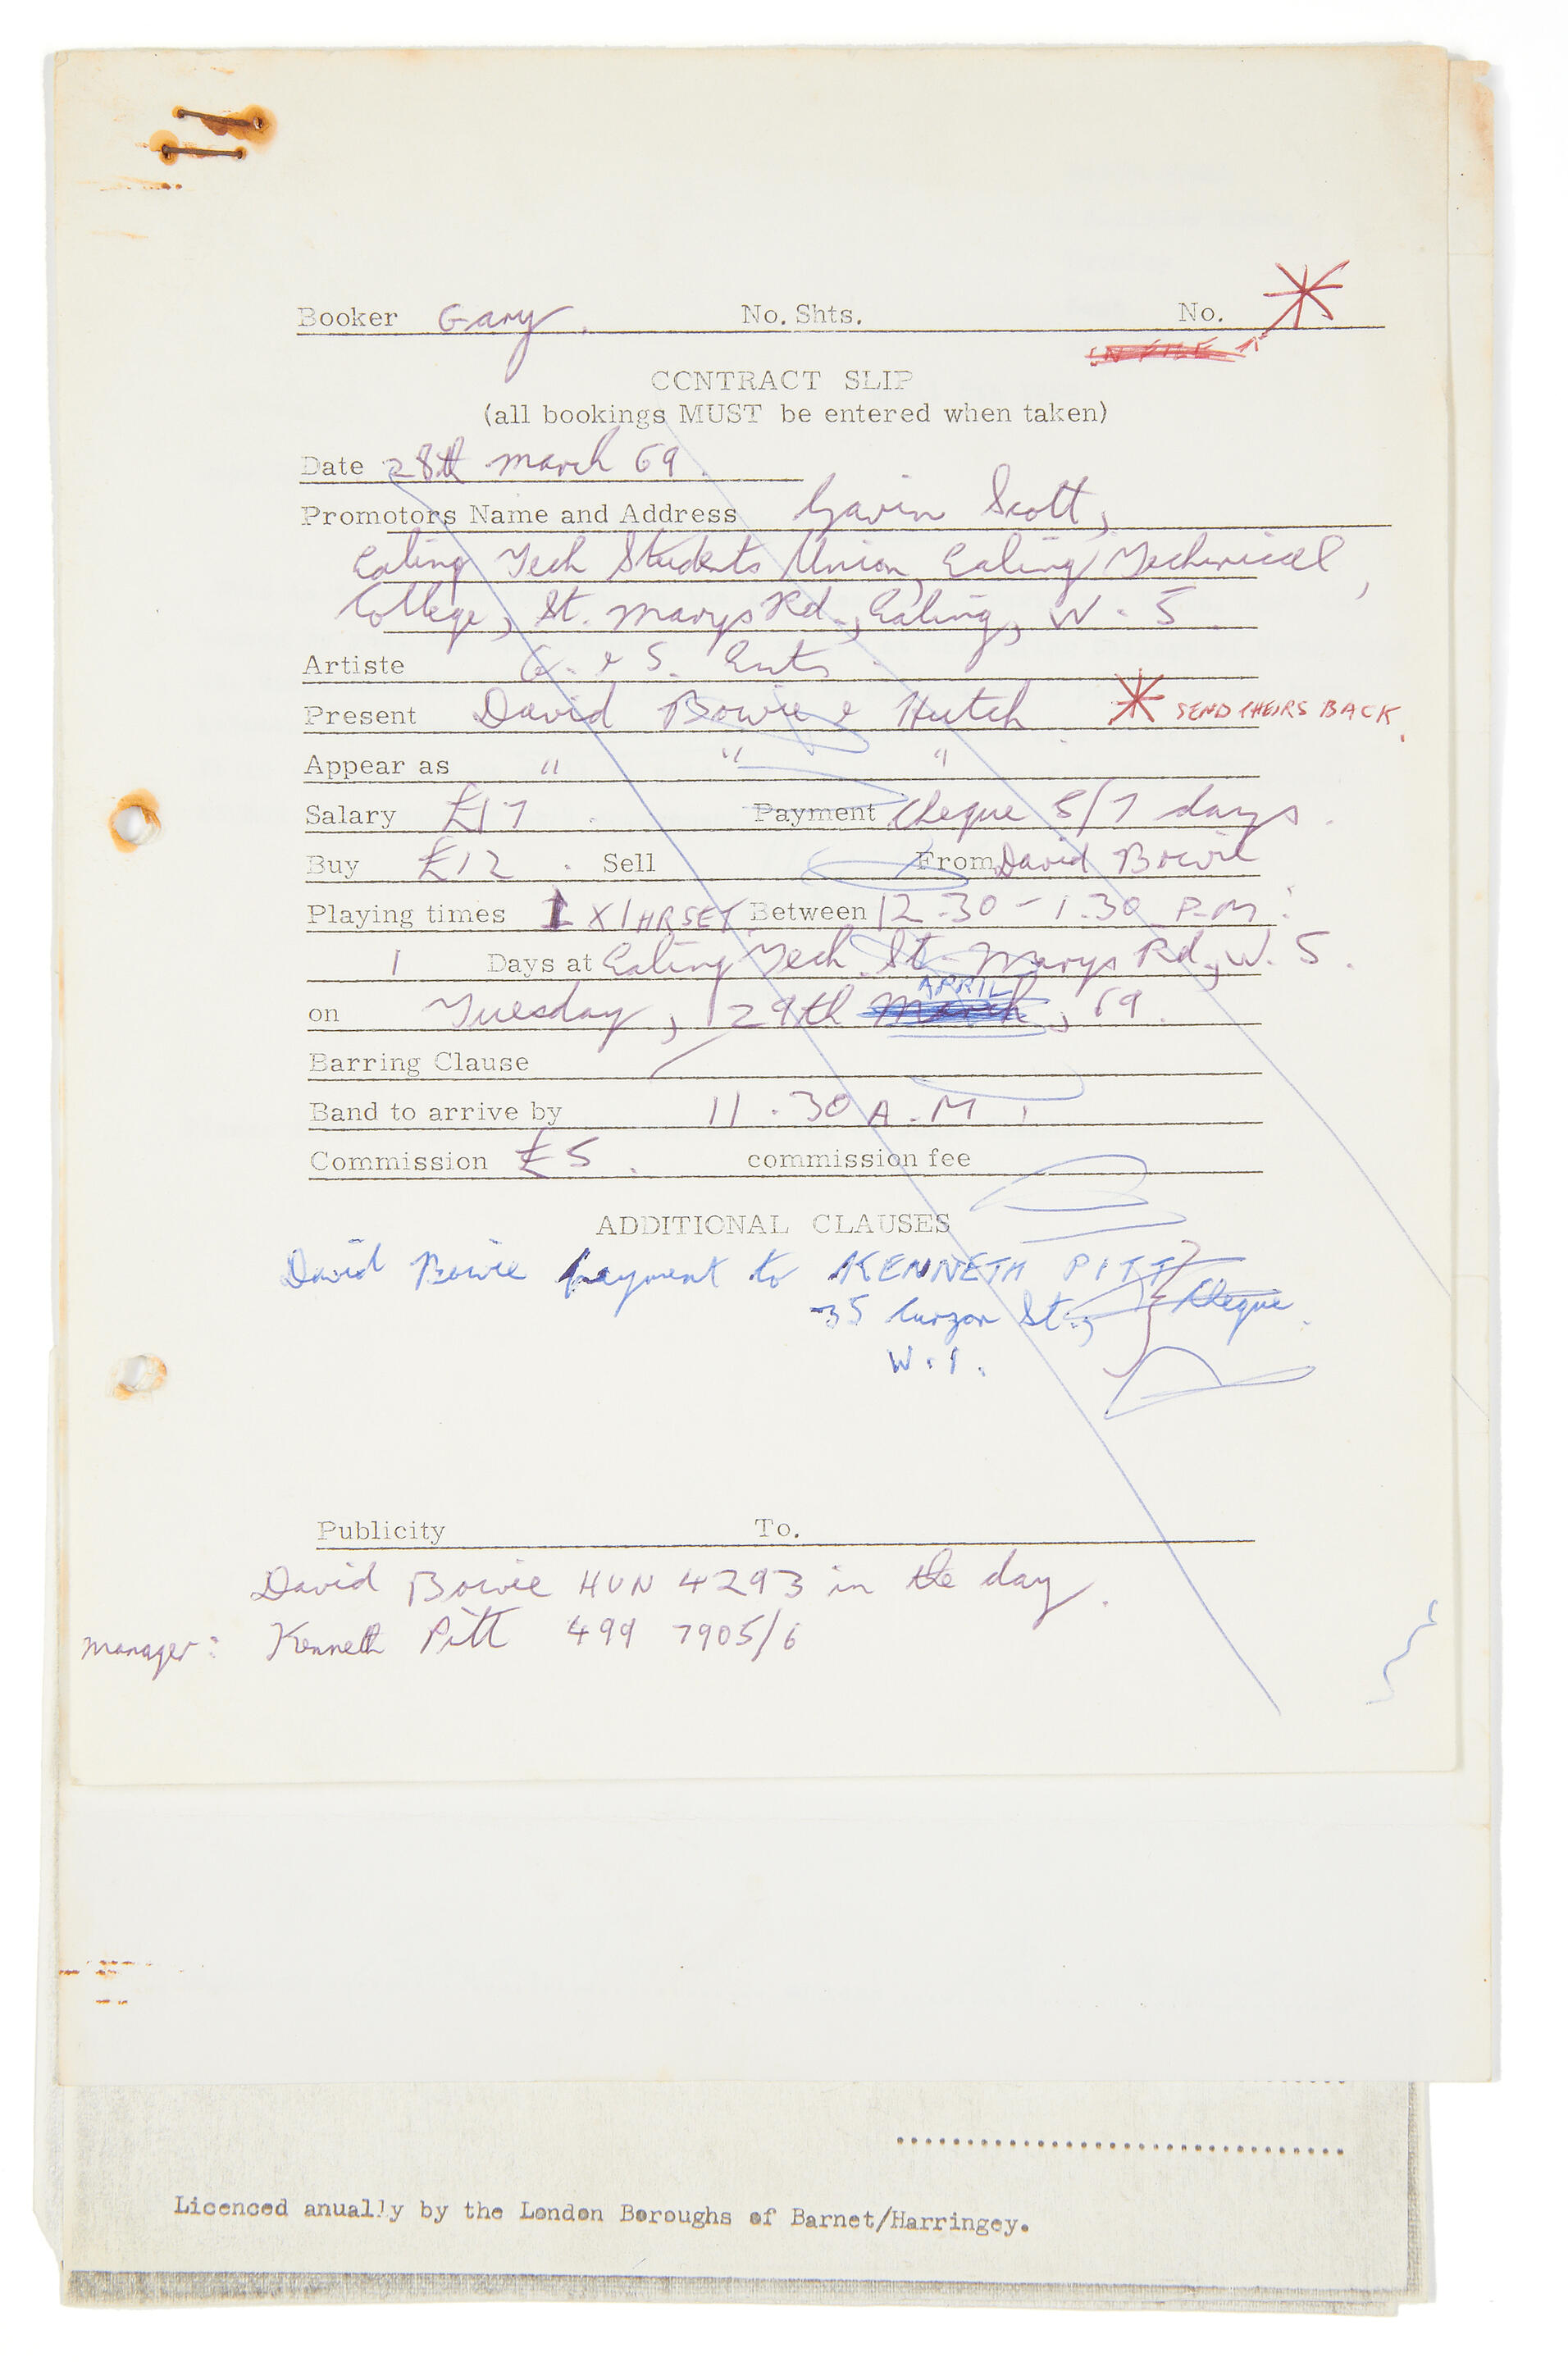 Booker Gary. No. Shts. No. *
IN FILE
CONTRACT SLIP
(all bookings MUST be entered when taken)
Date 28th March 69.
Promotors Name and Address Gavin Scott,
Ealing Tech Students Union, Ealing Technical,
College, St. Marys Rd., Ealing, W.5.
Artiste G. & S. Ents.
Present David Bowie & Hutch * SEND THEIRS BACK.
Appear as " " "
Salary £17. Payment Cheque 5/7 days.
Buy £12. Sell From David Bowie
Playing times 1 X 1 HR SET. Between 12.30 - 1.30 P.M.
1 Days at Ealing Tech. St. Marys Rd., W.5.
APRIL
on Tuesday, 29th March, 69.
Barring Clause
Band to arrive by 11.30 A.M.
Commission £5. commission fee
ADDITIONAL CLAUSES
David Bowie payment to KENNETH PITT
35 Curzon St., Cheque.
W.1.
Publicity To.
David Bowie HUN 4293 in the day.
Manager: Kenneth Pitt 499 7905/6
Licenced anually by the London Boroughs of Barnet/Harringey.